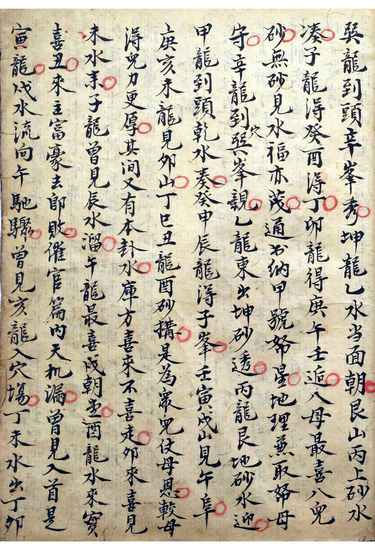 巽龍到頭辛峯秀坤龍乙水当面朝艮山丙上砂水
湊子龍淂癸酉淂丁卯龍得庚午壬追八母最喜八兒
砂無砂見水福亦茂通书纳甲號努星地理兼取努母
守辛龍到巽穴峯親乙龍東出坤砂透丙龍艮地砂水迎
甲龍到頭乾水奏癸甲辰龍淂子峯壬寅戌山見午阜
庚亥未龍見卯山丁巳丑龍酉砂搆是為眾兒仗母恩較母
淂兒力更厚其間又有本卦水庫方喜來不喜走卯來喜見
未水未子龍曾見辰水溜午龍最喜戌朝酉龍水來實
喜丑來主富豪去郎敗催官篇内天机漏曾見入首是
寅龍戌水流向午馳驟曾見亥龍入穴塲丁未水出丁卯